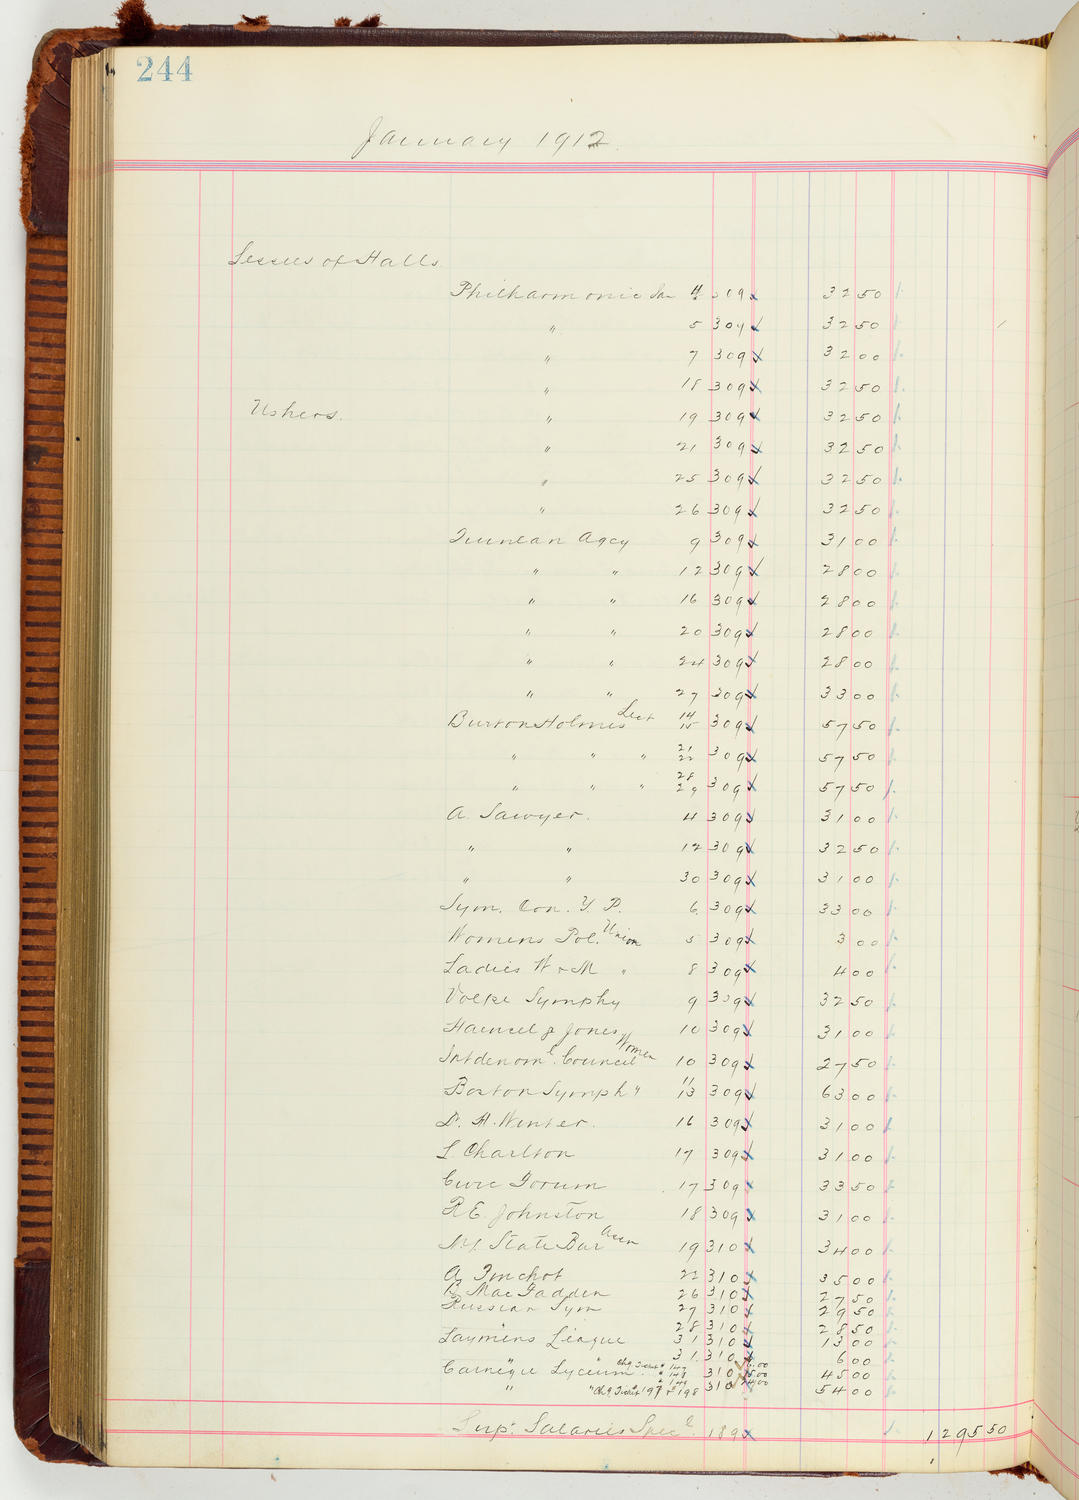 244
January 1912.
Lessees of Halls.
Philharmonic Jan 4 309 32 50
" 5 309 32 50
" 7 309 32 00
" 18 309 32 50
Ushers. " 19 309 32 50
" 21 309 32 50
" 25 309 32 50
" 26 309 32 50
Quinlan Agcy 9 309 31 00
" " 12 309 28 00
" " 16 309 28 00
" " 20 309 28 00
" " 24 309 28 00
" " 27 309 33 00
Burton Holmes Lect 14 15 309 57 50
" " " 21 22 309 57 50
" " " 28 29 309 57 50
A. Sawyer. 4 309 31 00
" " 12 309 32 50
" " 30 309 31 00
Sym. Con. Y. P. 6 309 33 00
Womens Pol. Union 5 309 3 00
Ladies W & M " 8 309 4 00
Volpe Symphy 9 309 32 50
Haensel & Jones 10 309 31 00
Intdenoml. Council Women 10 309 27 50
Boston Symphy 11 13 309 63 00
D. H. Winter. 16 309 31 00
L. Charlton 17 309 31 00
Civic Forum 17 309 33 50
R. E. Johnston 18 309 31 00
N.Y. State Bar Assn 19 310 34 00
A. 22 310 35 00
B. MacFadden 26 310 27 50
Russian Sym 27 310 29 50
" 28 310 28 50
Laymens League 31 310 13 00
" " 31. 310 6 00
Carnegie Lyceum Chg Ticket # 147 " 148 " 149 310 6.00 15.00 24.00 45 00
" " Chg Ticket 197 & 198 310 54 00
Supt. Salaries Specl. 189 1295 50